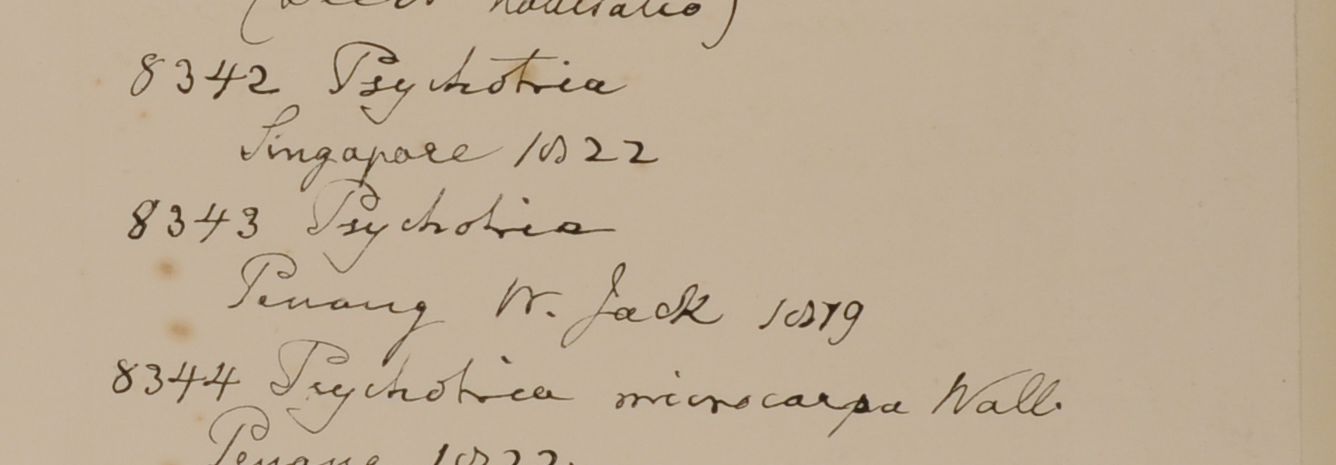 8342 Psychotria
Singapore 1822
8343 Psychotria
Penang W. Jack 1819
8344 Psychotria microcarpa Wall.
Penang 1822.